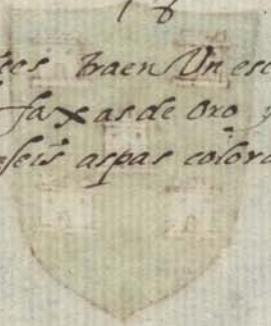 18
ees traen Un esc
faxas de oro y
seis aspas colora